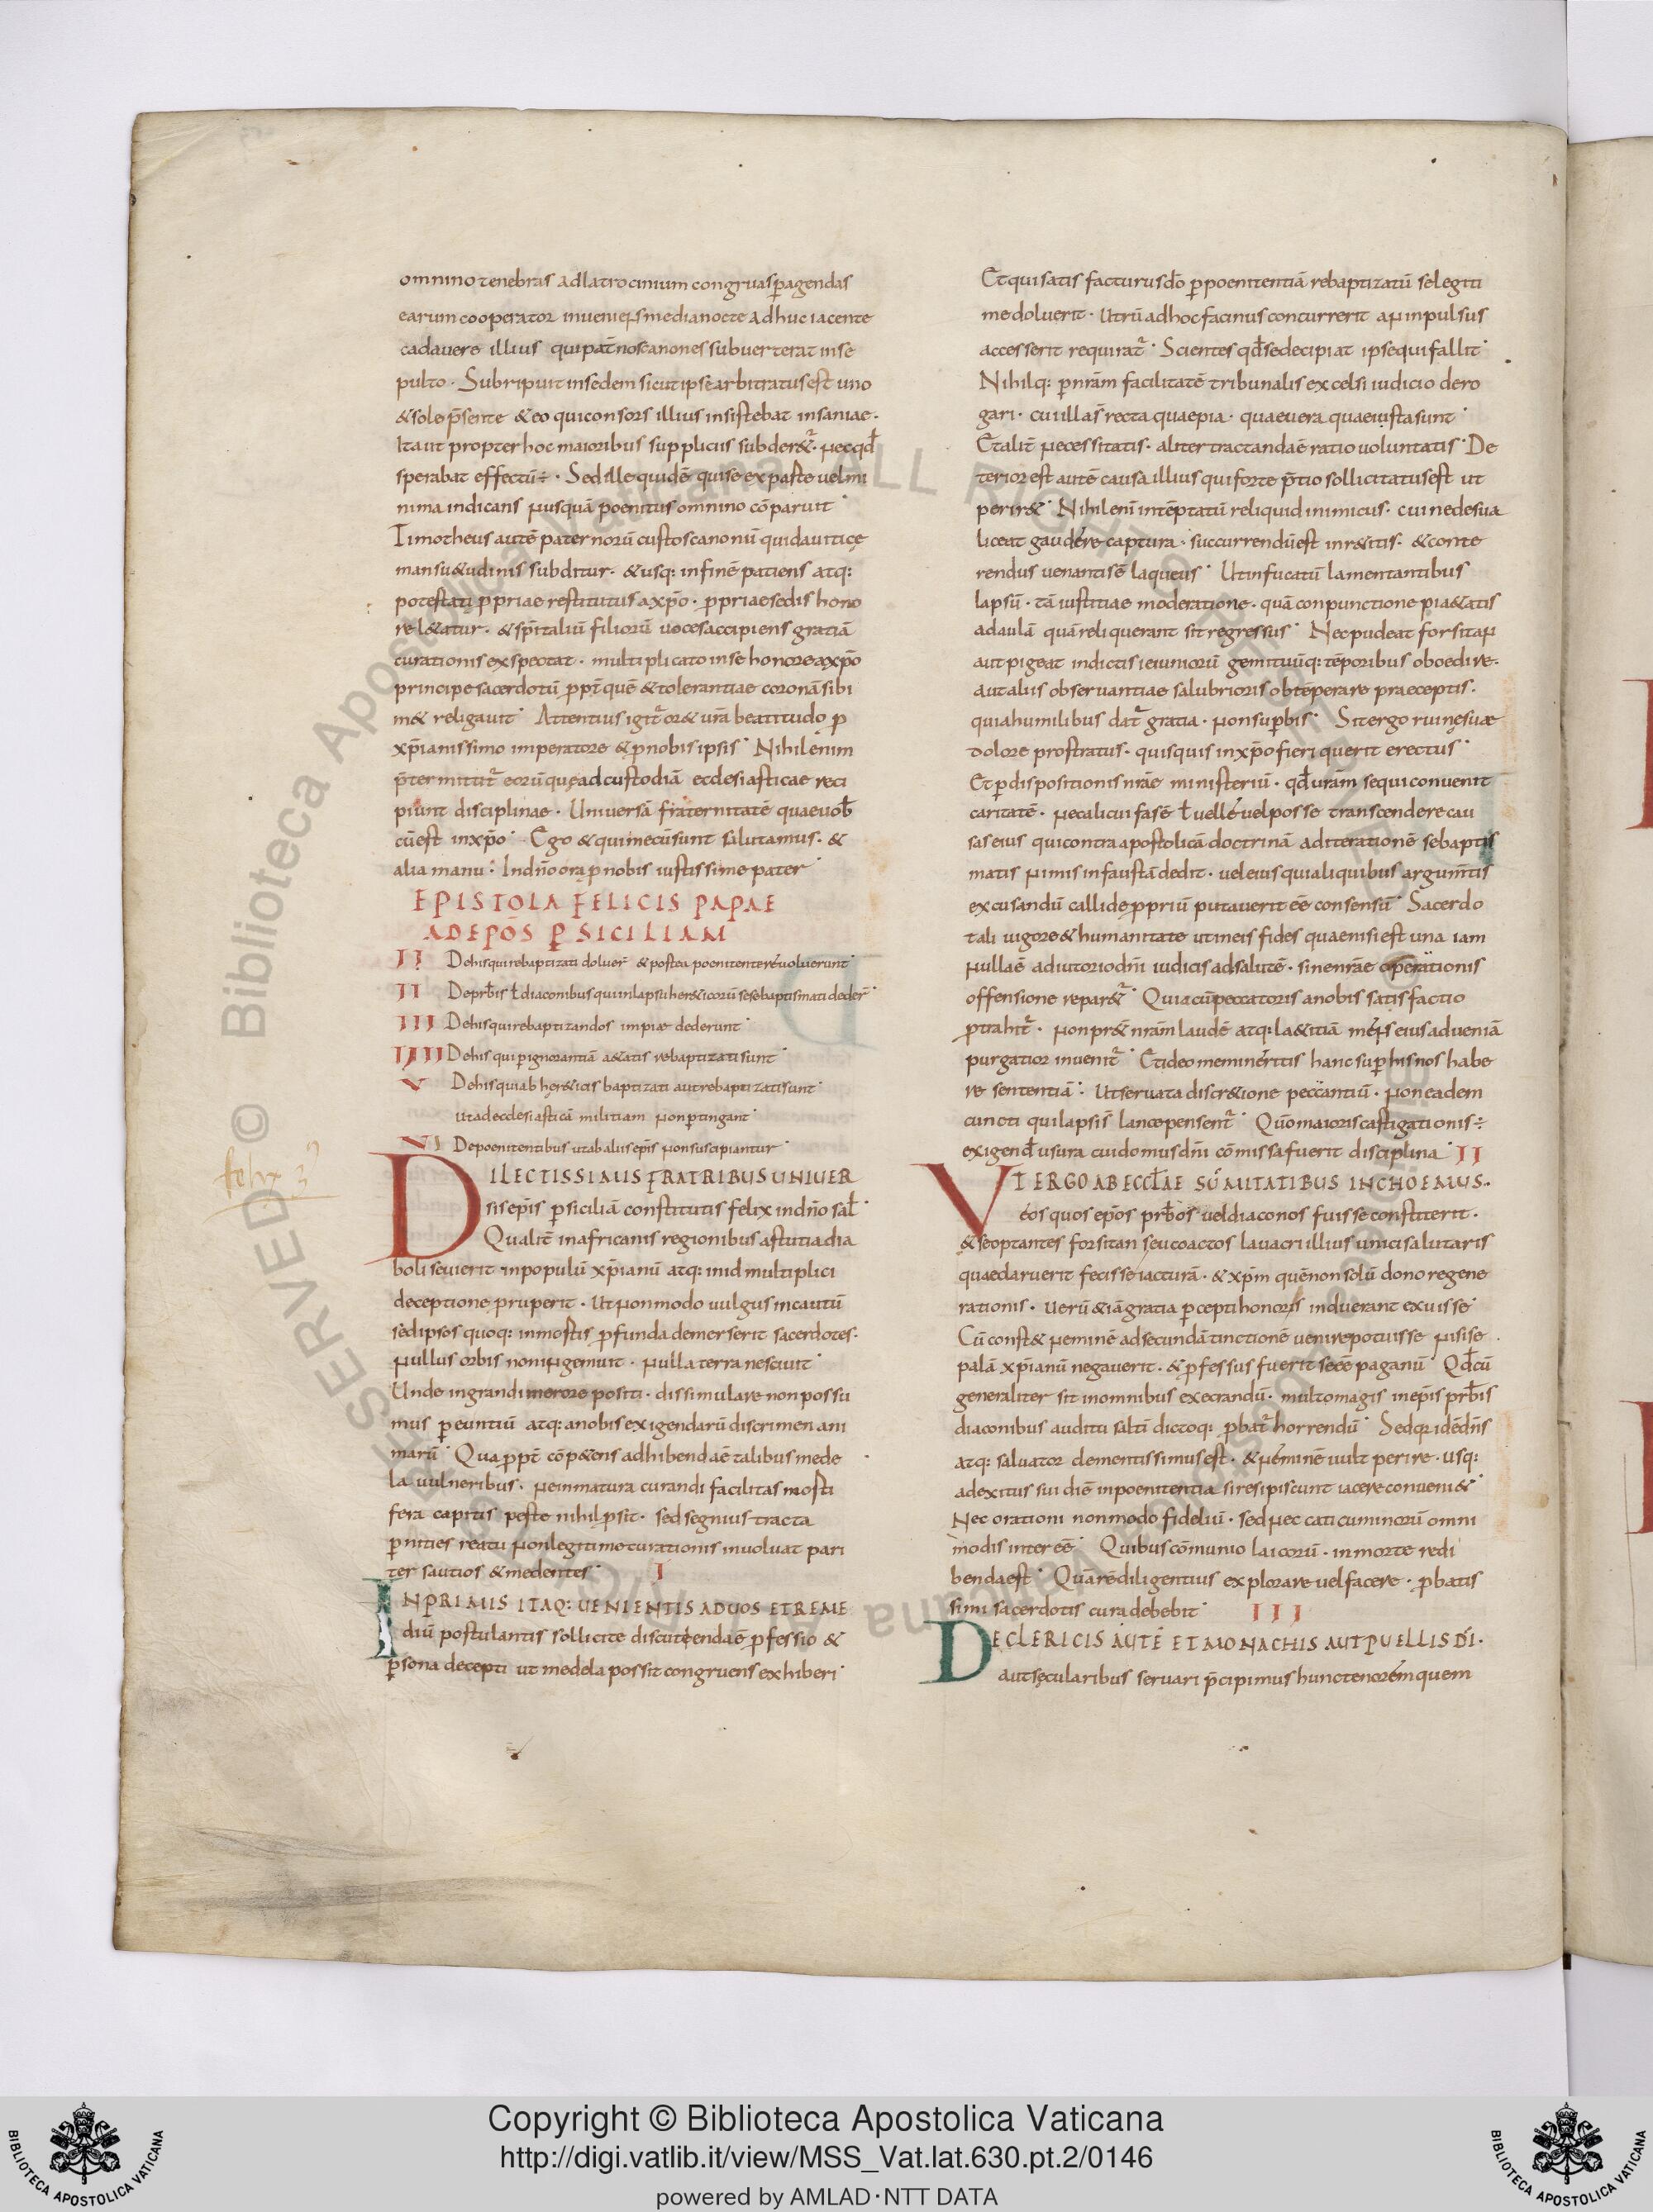 omnino tenebras ad latrocinium congruas ꝑagendas
earum cooperator inueniens media nocte adhuc iacente
cadauere illius qui pat̄nos canones subuerterat inse
pulto · Subripuit in sedem sicut ipse arbitratus est uno
& solo p̄sente & eo qui consors illius insistebat insaniae ·
Ita ut propter hoc maioribus suppliciis subder&ur · nec qđ
sperabat effectū ÷ · Sed ille quidē qui se ex parte uel mi
nima indicans nusquā poenitus omnino cōparuit ·
Timotheus autē paternorū custos canonū qui dauiticę
mansu&udinis subditur · & usq: in finē patiens atq:
potestati ꝓpriae restitutus a xp̄o · ꝓpriae sedis hono
re l&atur · & sp̄italiū filiorū uoces accipiens gratiā
curationis expectat · multiplicato in se honore a xp̄o
principe sacerdotū ꝓpt̄ quē & tolerantiae coronā sibi
m& religauit · Attentius igit̄ or& ur̄a beatitudo ꝓ
xp̄ianissimo imperatore & ꝓ nobis ipsis · Nihil enim
p̄termittit̄ eorū quę ad custodiā ecclesiasticae reci
piunt disciplinae · Uniuersā fraternitatē quae uob̄
cū est in xp̄o · Ego & qui mecū sunt salutamus · &
alia manu · In dn̄o ora ꝓ nobis iustissime pater ·
EPISTOLA FELICIS PAPAE
AD EPŌS ꝑ SICILIAM
II De his qui rebaptizati doluer̄ & postea poenitentere uoluerunt ·
II De prb̄is ł diaconibus qui in lapsu her&icorū sese baptismati deder̄ ·
III De his qui rebaptizandos impiae dederunt ·
IIII De his qui ꝑ ignorantiā a&atis rebaptizati sunt ·
V De his qui ab her&icis baptizati aut rebaptizati sunt ·
ut ad ecclesiasticā militiam non ꝑtingant ·
VI De poenitentibus ut ab aliis ep̄is non suscipiantur ·
felix 3
DILECTISSIMIS FRATRIBUS UNIUER
sis ep̄is ꝑ siciliā constitutis felix in dn̄o sał ·
Qualit̄ in africanis regionibus astutia dia
boli seuierit in populū xp̄ianū atq: in id multiplici
deceptione ꝓruperit · Ut non modo uulgus incautū
sed ipsos quoq: in mostis ꝓfunda demerserit sacerdotes ·
nullus orbis non ingemuit · nulla terra nesciuit ·
Unde in grandi merore positi · dissimulare non possu
mus ꝑeuntiū atq: a nobis exigendarū discrimen ani
marū · Quapropt̄ cōp&ens adhibenda ē talibus mede
la uulneribus · ne inmatura curandi facilitas mosti
fera captis peste nihil ꝓsit · sed segnius tracta
ꝑnities reatu non legitimo turationis inuoluat pari
ter sautios & medentes · I
IN PRIMIS ITAQ: UENIENTIS AD UOS ET REME
diū postulantis sollicite discutienda ē ꝓfessio &
ꝑsona decepti ut medela possit congruens exhiberi ·
Et qui satis facturus dō ꝑ poenitentiā rebaptizatū se legiti
me doluerit · Utrū ad hoc facinus concurrerit an inpulsus
accesserit requirat̄ · Scientes qđ se decipiat ipse qui fallit ·
Nihilq: ꝑ nr̄am facilitatē tribunalis excelsi iudicio dero
gari · cui illa s̄ recta quae pia · quae uera quae iusta sunt ·
Et alit̄ necessitatis · aliter tractanda ē ratio uoluntatis · De
terior est autē causa illius qui forte p̄tio sollicitatus est ut
perir& · Nihil eni intēptatū reliquid inimicus · cui ne de sua
liceat gaudere captura · succurrendū est inr&itis · & conte
rendus uenantis ē laqueus · Ut infucatū lamentantibus
lapsū · tā iustitiae moderatione · quā conpunctione pi&atis
ad aulā quā reliquerant sit regressus · Nec pudeat forsitan
aut pigeat indictis ieiuniorū gemituūq: tēporibus oboedire ·
aut aliis obseruantiae salubrioris obtēperare praeceptis ·
quia humilibus dat̄ gratia · non suꝑbis · Sit ergo ruinę suae
dolore prostratus · quisquis in xp̄o fieri querit erectus ·
Et ꝑ dispositionis nr̄ae ministeriū · qđ ur̄am sequi conuenit
caritatē · nec alicui fas ē ł uelle uel posse transcendere cau
sas eius qui contra apostolicā doctrinā ad iterationē se baptis
matis nimis infaustā dedit · uel eius qui aliquibus argum̄tis
excusandū callide ꝓpriū putauerit ēē consensū · Sacerdo
tali uigore & humanitate ut in eis fides quae nisi est una iam
nulla ē adiutorio dn̄i iudicis ad salutē · sine nr̄ae operationis
offensione reparet̄ · Quia cū peccatoris a nobis satisfactio
ꝓtrahit̄ · non pr& nr̄am laudē atq: l&itiā mēns eius ad ueniā
purgatior inuenit̄ · Et ideo memineritis hanc suꝑ his nos habe
re sententiā · Ut seruata discr&ione peccantiū · non eadem
cuncti qui lapsi s̄ lance pensent̄ · Qūo maioris castigationis ÷
exigenđ usura cui domus dn̄i cōmissa fuerit disciplina · II
VT ERGO AB ECCŁAE SŪMITATIBUS INCHOEMUS ·
eos quos ep̄os prb̄os uel diaconos fuisse constiterit ·
& se optantes forsitan seu coactos lauacri illius unici salutaris
quae daruerit fecisse iacturā · & xp̄m quē non solū dono regene
rationis · uerū & iā gratia ꝑcepti honoris induerant exuisse ·
Cū const& neminē ad secundā tinctionē uenire potuisse nisi se
palā xp̄ianū negauerit · & ꝓfessus fuerit se ēē paganū · Qđ cū
generaliter sit in omnibus execrandū · multo magis in ep̄is prb̄is
diaconibus auditu saltī dictoq: ꝓbat̄ horrendū · Sed quia idē dn̄s
atq: saluator clementissimus est · & neminē uult perire · usq:
ad exitus sui diē in poenitentia si resipiscunt iacere conueni& ·
Nec orationi non modo fideliū · sed nec caticuminorū omni
modis interēē · Quibus cōmunio laicorū · in morte redi
benda est · Quā rē diligentius explorare uel facere · ꝓbatis
simi sacerdotis cura debebit · III
DE CLERICIS AUTĒ ET MONACHIS AUT PUELLIS DĪ ·
aut sęcularibus seruari p̄cipimus hunc tenorem quem
Copyright © Biblioteca Apostolica Vaticana
http://digi.vatlib.it/view/MSS_Vat.lat.630.pt.2/0146
powered by AMLAD·NTT DATA
BIBLIOTECA APOSTOLICA VATICANA
BIBLIOTECA APOSTOLICA VATICANA